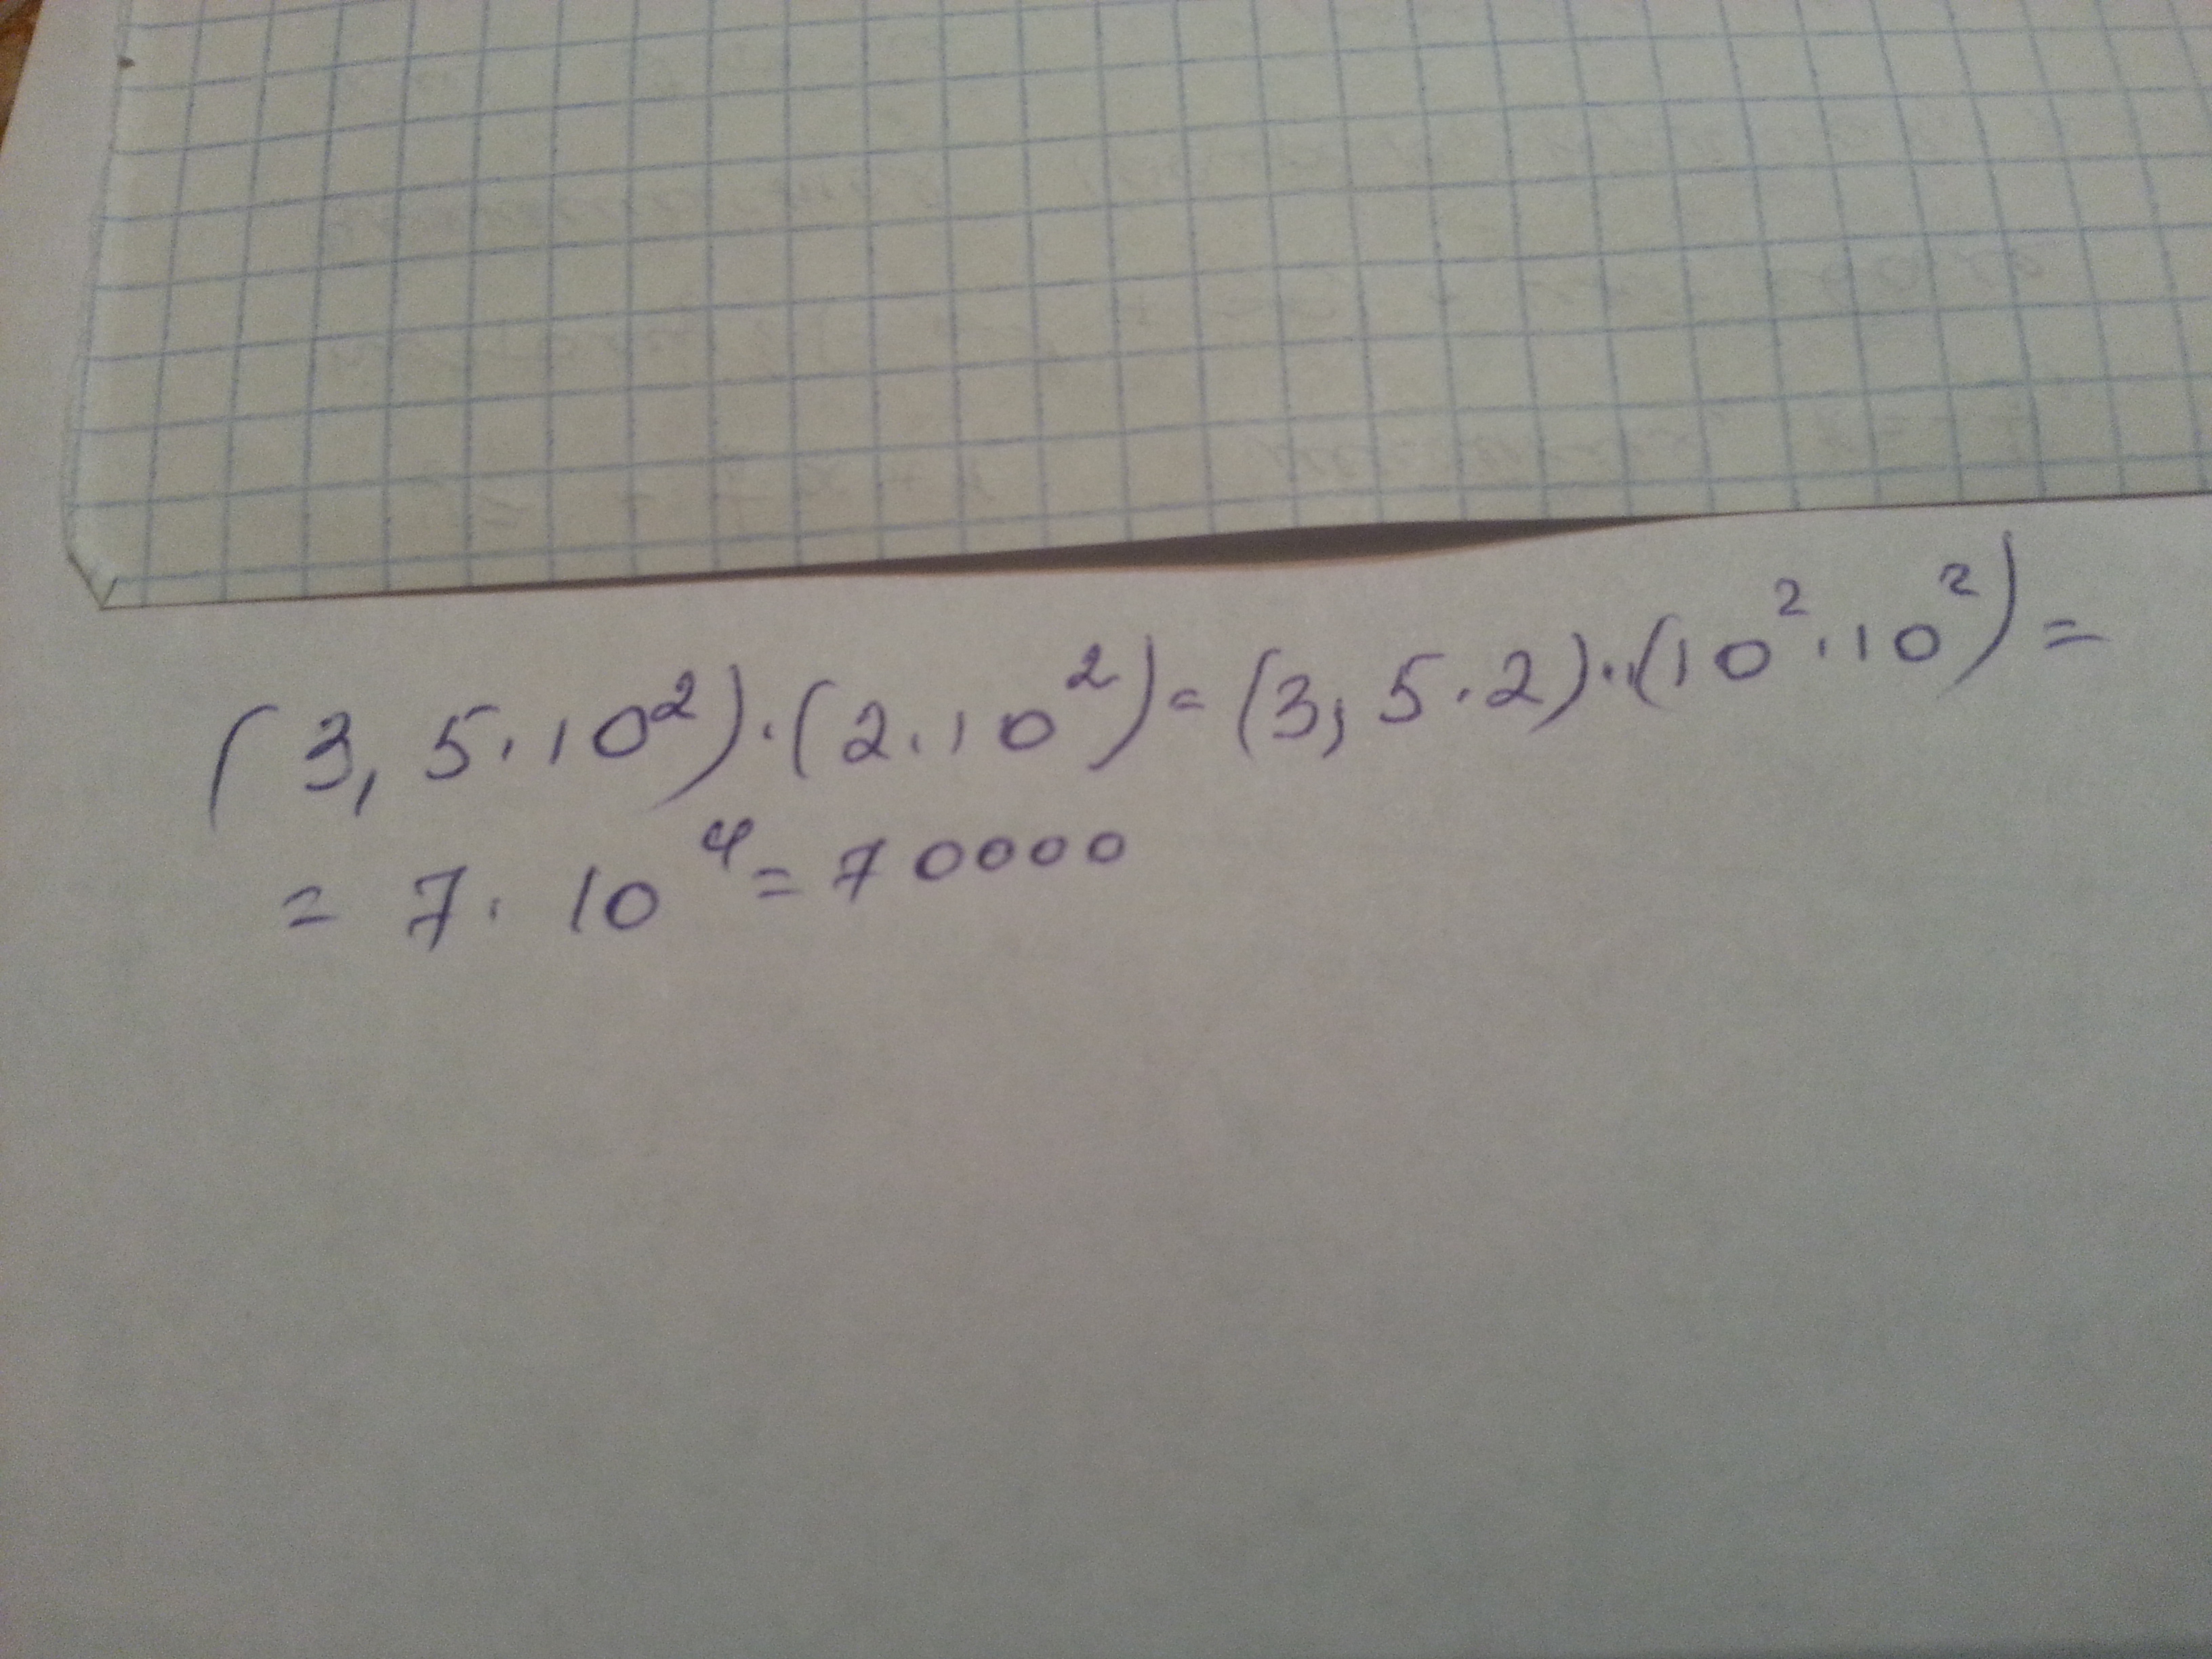 (3,5·10²)·(2·10²)=(3,5·2)·(10²·10²)=
=7·10⁴=70000